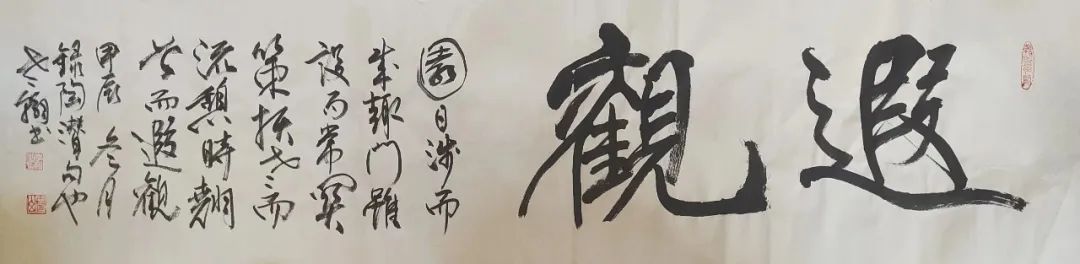 遐觀
園日涉而
成趣門雖
設而常關
策扶老而
流憩時翹
首而遐觀
甲辰 月
錄陶潛句也
書